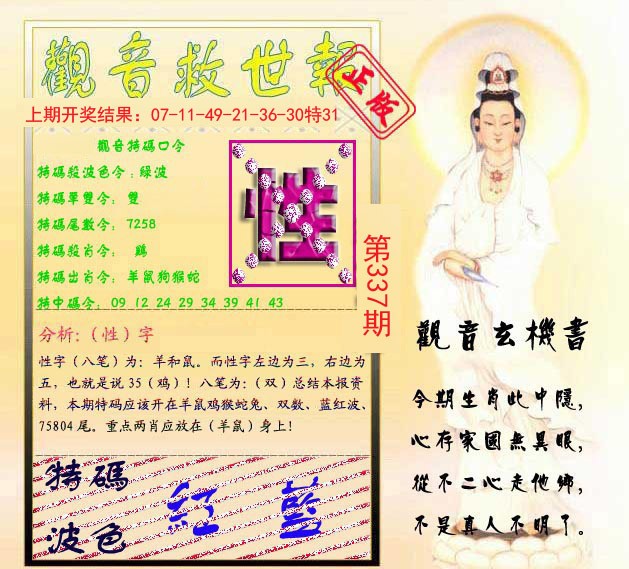 觀音救世報
正版
上期开奖结果：07-11-49-21-36-30特31
觀音特碼口令
特碼殺波色令：綠波
特碼單雙令： 雙
特碼尾數令： 7258
特碼殺肖令： 鷄
特碼出肖令： 羊鼠狗猴蛇
特中碼令： 09 12 24 29 34 39 41 43
性
第337期
分析:（性）字
性字（八笔）为：羊和鼠。而性字左边为三，右边为
五，也就是说 35（鸡）！八笔为：（双）总结本报资
料，本期特码应该开在羊鼠鸡猴蛇兔、双数、蓝红波、
75804 尾。重点两肖应放在（羊鼠）身上！
特碼
波色
紅 藍
觀音玄機書
今期生肖此中隱，
心存家國無異眼，
從不二心走他鄉，
不是真人不明了。